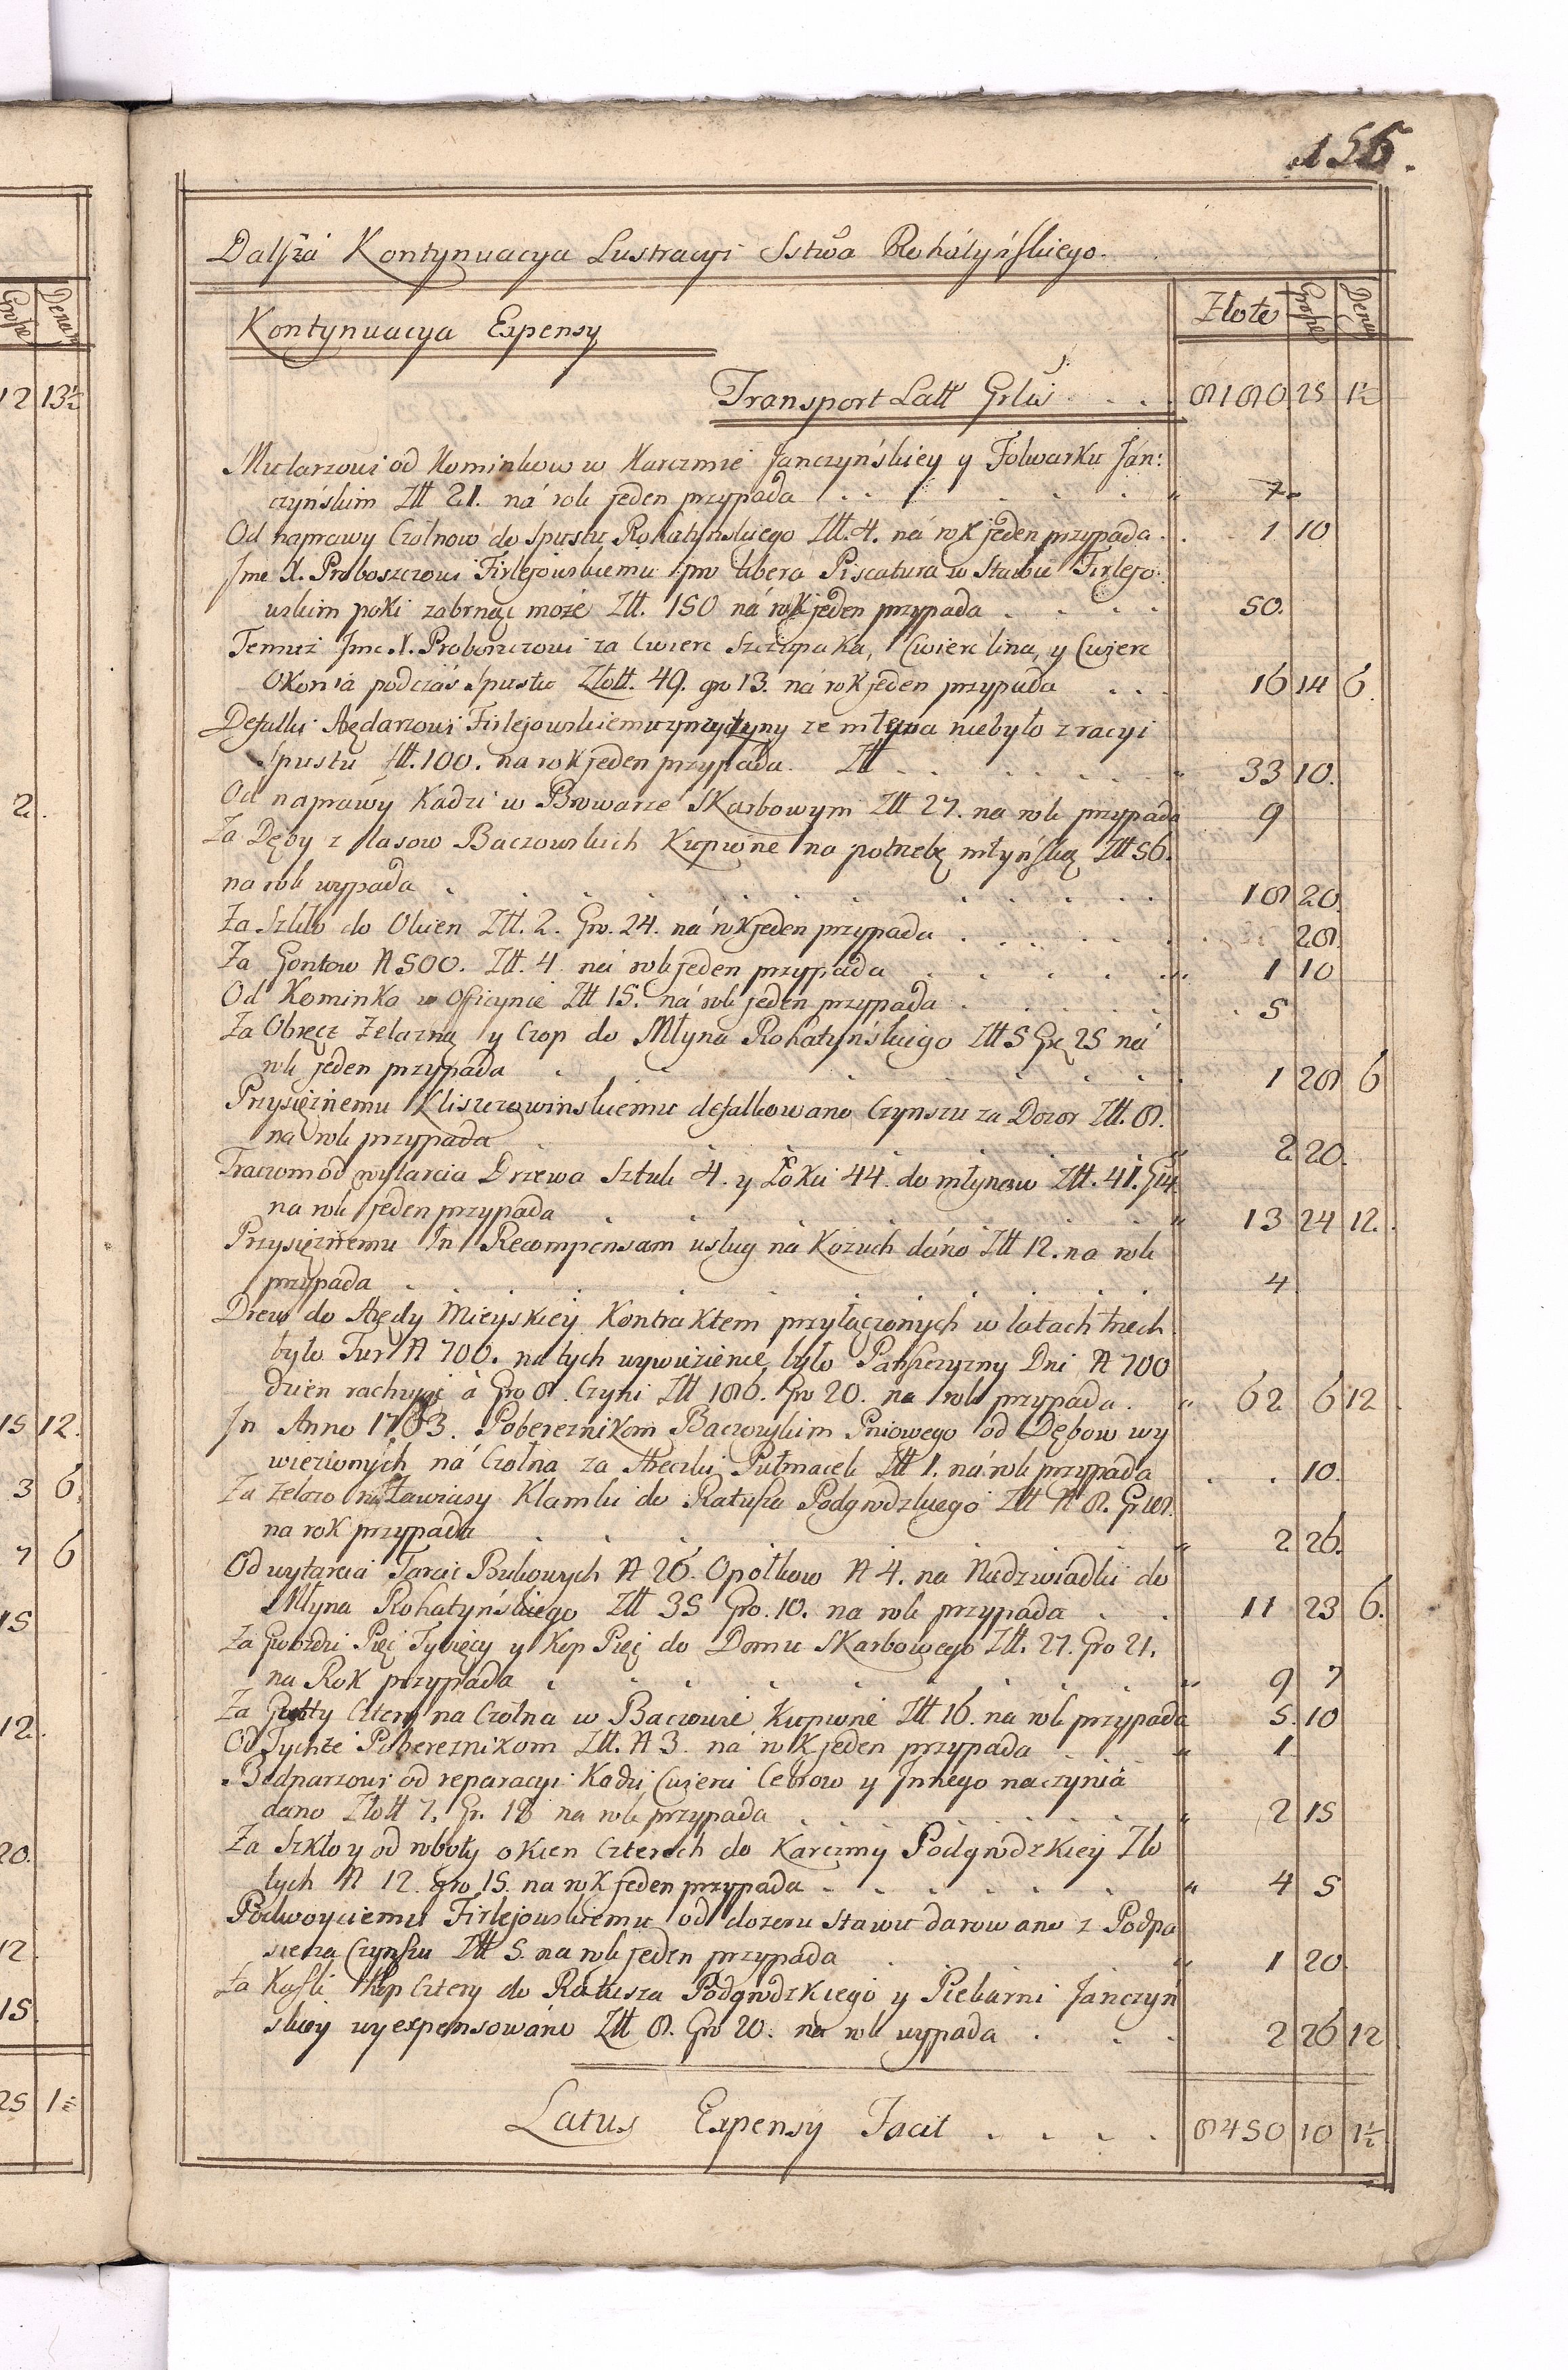 155.
Dalsza Kontynuacya Lustracyi Sstwa Rohatyńskiego.
Kontynuacya Expensy
Złote Grosze Denar
Transport Latt Grlis . . . 8180 25 1½
Mularzowi od Kominkow w Karczmie Janczyńskiey y Folwarku Jan:
czyńskim Ztt 21. ná rok jeden przypada . . . 7
Od naprawy Czółnow do Spustu Rohatyńskiego Ztt. 4. ná rok jeden przypada . . 1 10
Jmc X. Proboszczowi Firlejowskiemu pro libera Piscatura w Stawie Firlejo:
wskim poki zabrnąć może Ztt. 150 ná rok jeden przypada . . . 50.
Temuż Jmc X. Proboszczowi za Cwierc Szczupaka, Cwierc lina, y Cwierc
Okonia podczas Spustu Złott. 49. gro 13. ná rok jeden przypada . . . 16 14 6.
Defalki Arędarzowi Firlejowskiemu z przyczyny ze młyna niebyło z racyi
Spustu Ztt. 100. na rok jeden przypada. Ztt . . . 33 10.
Od naprawy Kadzi w Browarze Skarbowym Ztt 27. na rok przypada 9
Za Dęby z lasow Baczowskich Kupione na potrzebę młyńską Ztt 56.
na rok wypada . . . 18 20.
Za Szkło do Okien Ztt. 2. Gro. 24. ná rok jeden przypada . . . 28.
Za Gontow N 500. Ztt. 4. ná rok jeden przypada . . . 1 10
Od Kominka w Officynie Ztt 15. ná rok jeden przypada . . . 5
Za Obręcz Zelazną y Czop do Młyna Rohatyńskiego Ztt 5 Gr 25 ná
rok jeden przypada . . . 1 28 6
Przysiężnemu Kliszczowinskiemu defalkowano Czynszu za Dozor Ztt. 8.
na rok przypada . . . 2 20.
Traczom od wytarcia Drzewa Sztuk 4. y Łokci 44. do młynow Ztt. 41. G14
na rok jeden przypada . . . 13 24 12.
Przysiężnemu In Recompensam usług ná Kożuch dáno Ztt 12. na rok
przypada . . . 4
Drew do Arędy Mieyskiey Kontraktem przyłączonych w latach trzech
było Fur N 700. na tych wywiezienie było Pańszczyzny Dni N 700
dzien rachując á Gro 8. Czyni Ztt 186. Gro 20. na rok przypada . 62 6 12
In Anno 1763. Pobereznikom Baczowskim Pniowego od Dębow wy
wiezionych ná Czółna za Hreczki Pułmacek Ztt 1. ná rok przypada . . 10.
Za Zelazo ná Zawiasy Klamki do Ratusza Podgrodzkiego Ztt N 8. Gr 18.
na rok przypada . . . 2 26.
Od wytarcia Tarcic Bukowych N 26. Opołkow N 4. na Niedzwiadki do
Młyna Rohatyńskiego Ztt 35 Gro. 10. na rok przypada . . 11 23 6.
Za Gwozdzi Pięć Tysięcy y Kop Pięć do Domu Skarbowego Ztt. 27. Gro 21.
na Rok przypada . . . 9 7
Za Cztery na Czółna w Baczowie Kupione Ztt 16. na rok przypada 5. 10
Od Tychże Pobereznikom Ztt. N 3. ná rok jeden przypada . . . 1
Bednarzowi od reparacyi Kadzi Cwierci Cebrow y Innego naczynia
dano Złott 7. Gr. 18 na rok przypada . . . 2 15
Za Szkło y od roboty okien Czterech do Karczmy Podgrodzkiey Zło
tych N 12. gro 15. na rok jeden przypada . . . 4 5
Podwoyciemu Firlejowskiemu od dozoru Stawu darowano z Podpa
sieza Czynszu Ztt 5. na rok jeden przypada . . . 1 20.
Za Kafli Kop Cztery do Ratusza Podgrodzkiego y Piekarni Janczyń
skiey wyexpensowáno Ztt 8. Gro 20. na rok wypada . . . 2 26 12
Latus Expensy Facit . . . . 8450 10 1½